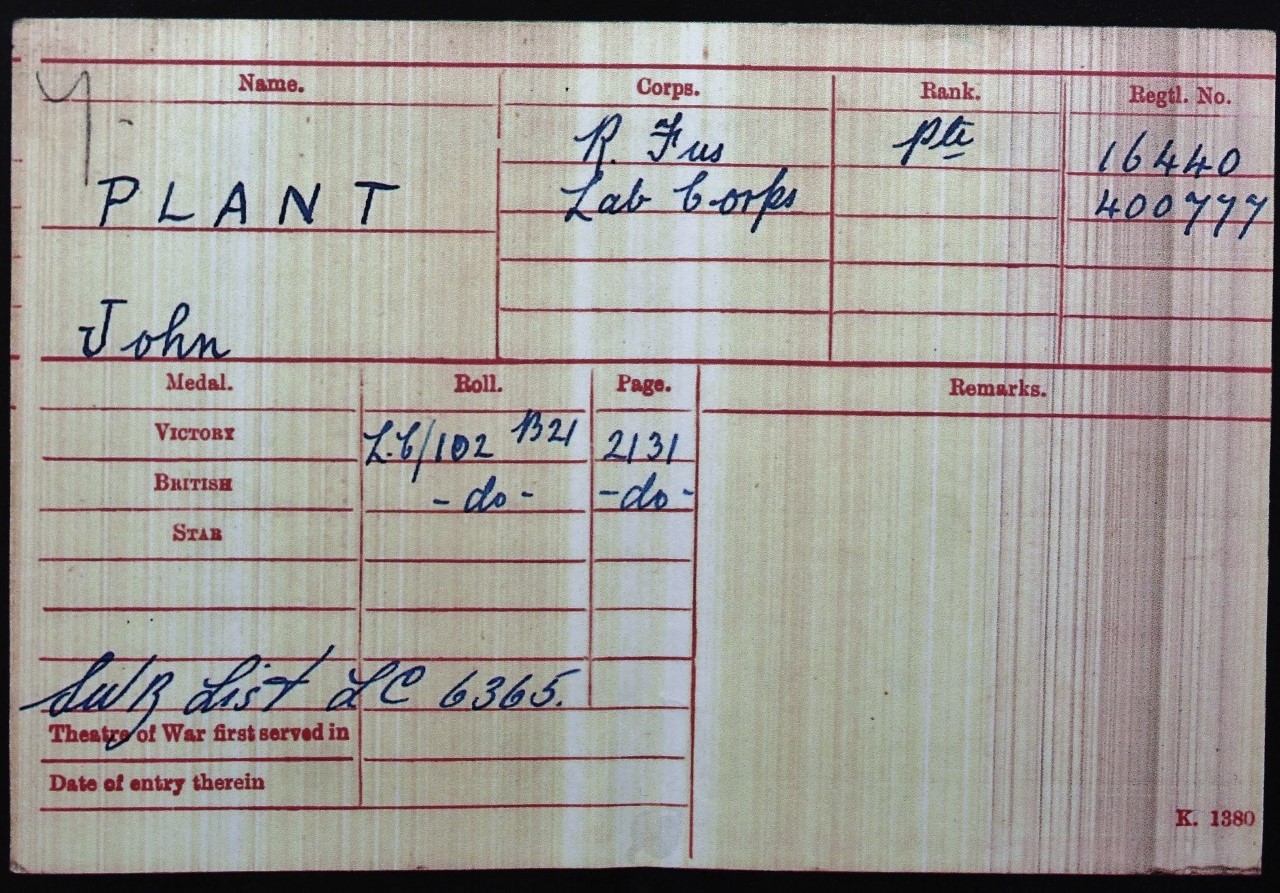 Name. Corps. Rank. Regtl. No.
R. Fus Pte 16440
PLANT Lab Corps 400777
John
Medal. Roll. Page. Remarks.
VICTORY L.C/102 B21 2131
BRITISH - do - - do -
STAR
SWB List LC 6365.
Theatre of War first served in
Date of entry therein
K. 1380